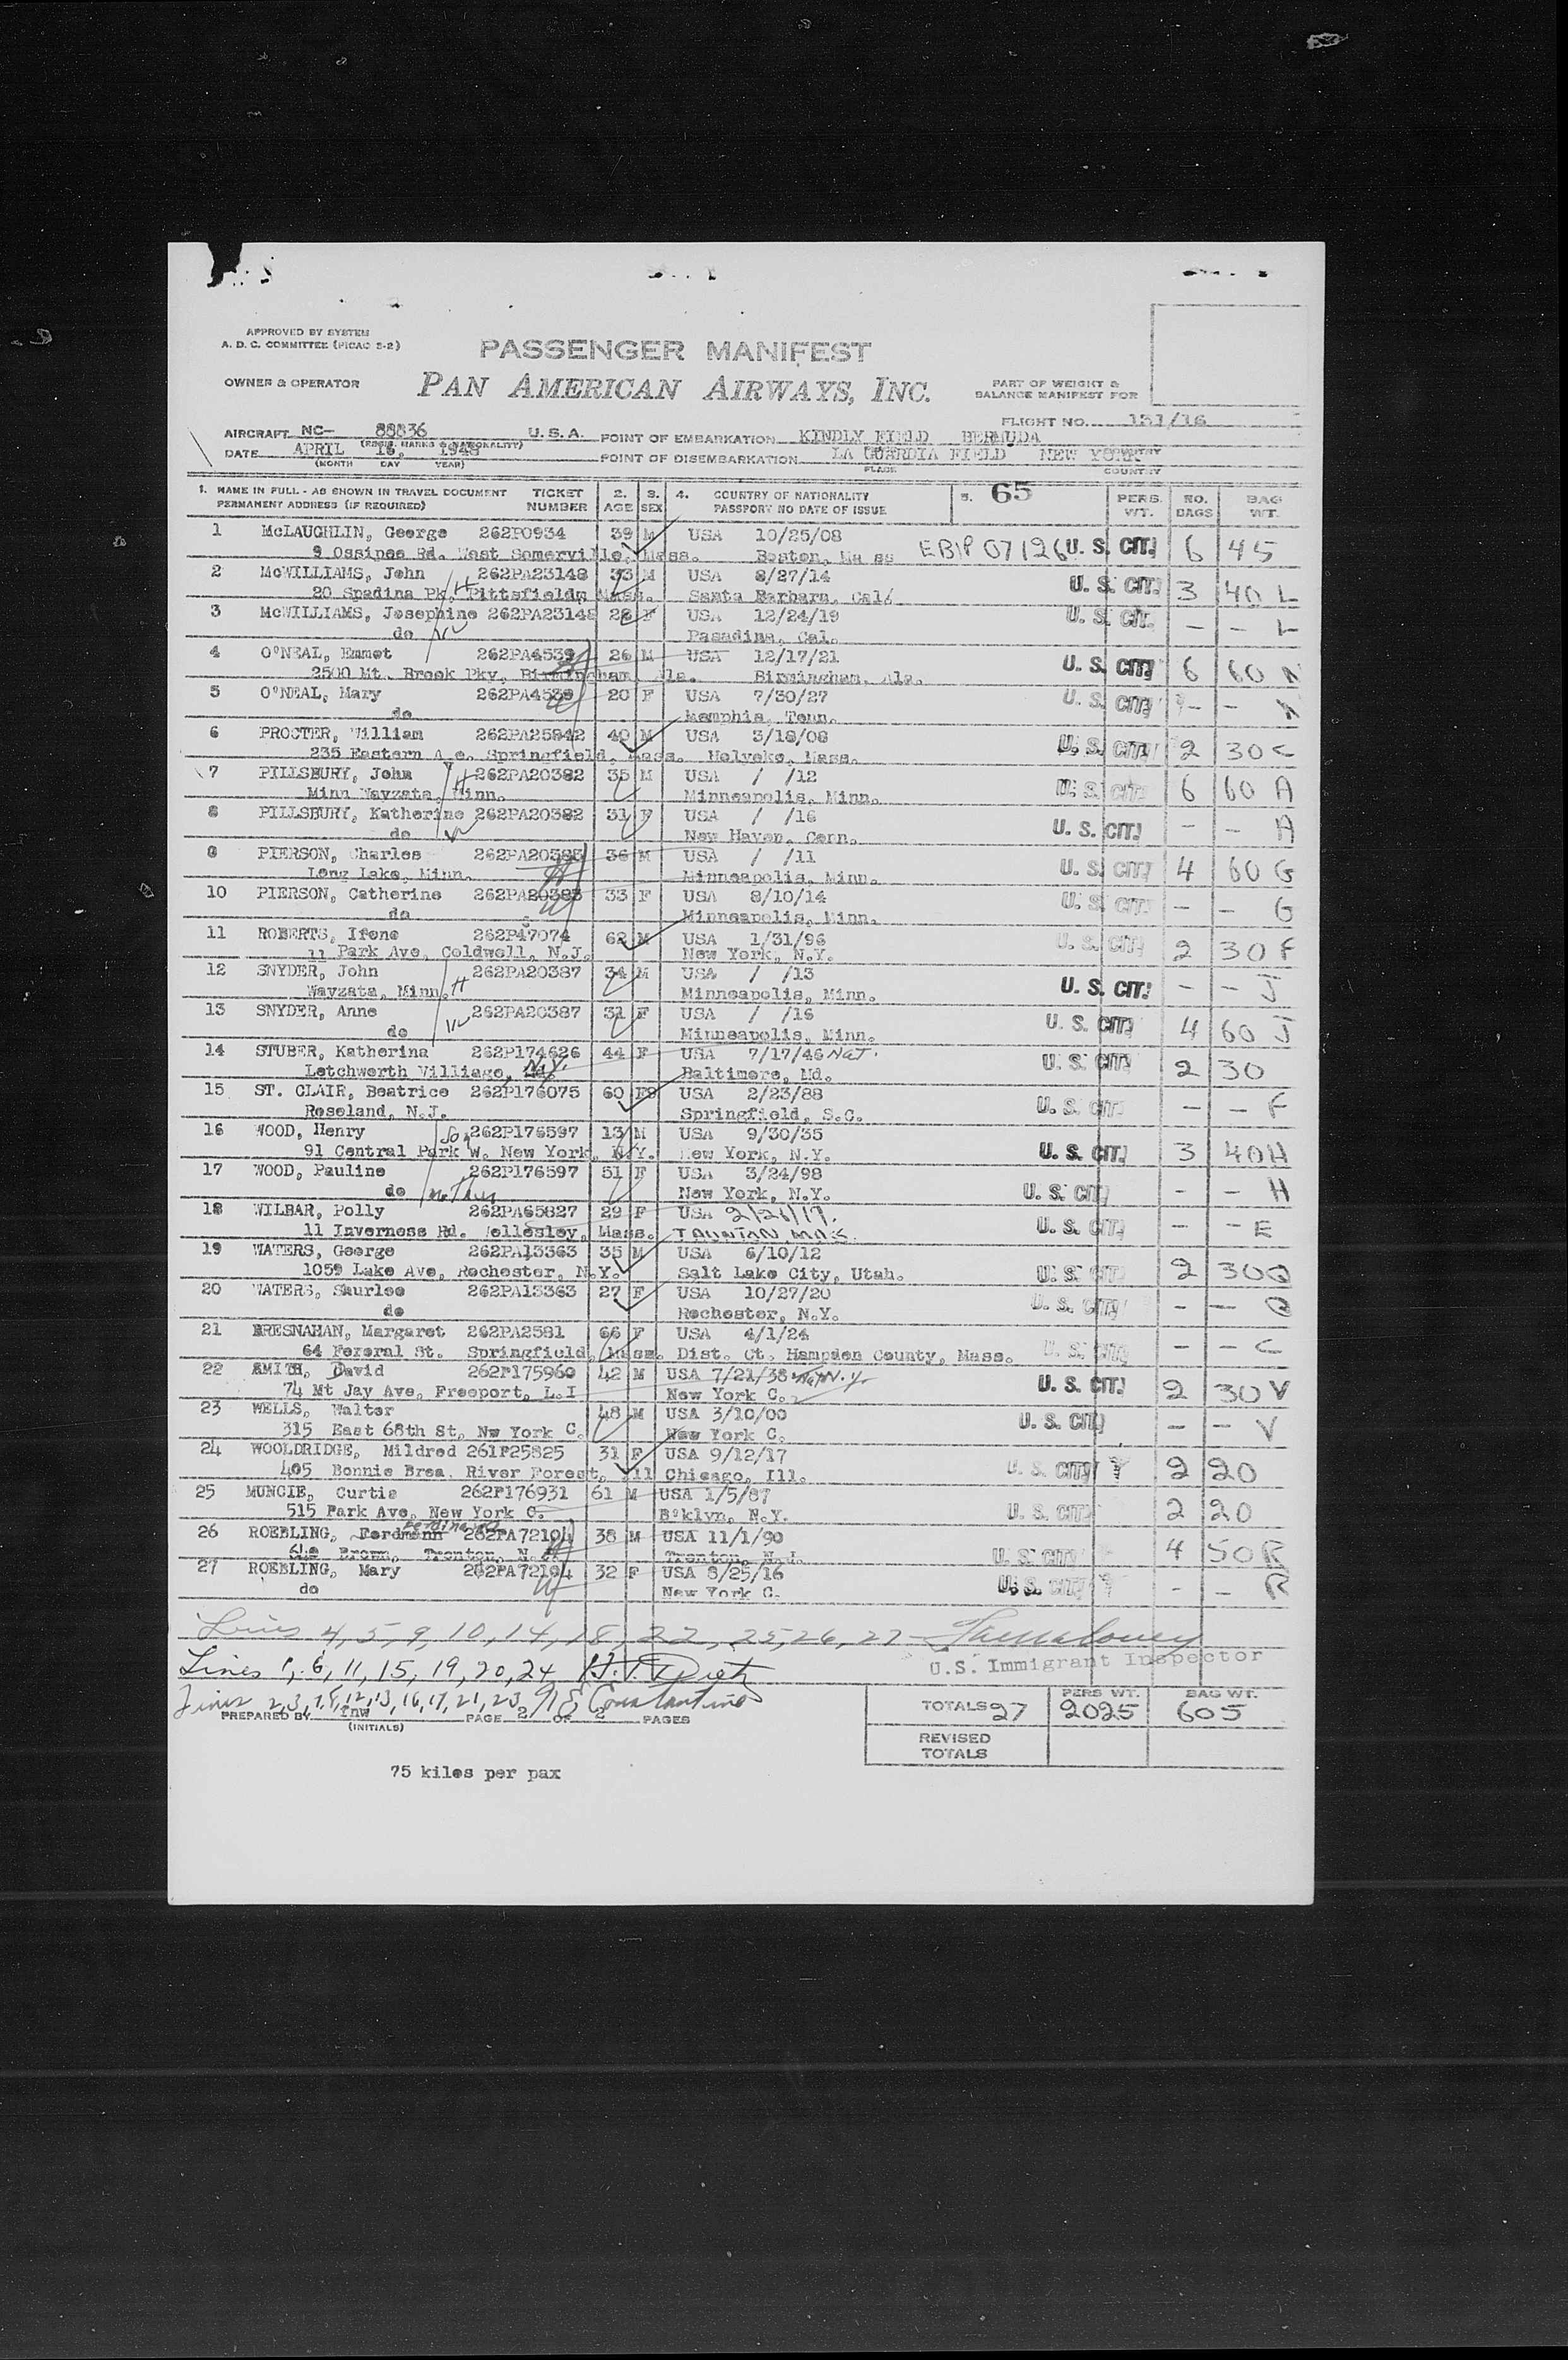 APPROVED BY SYSTEM
A. D. C. COMMITTEE (PICAO S-2)
PASSENGER MANIFEST
OWNER & OPERATOR PAN AMERICAN AIRWAYS, INC.
PART OF WEIGHT &
BALANCE MANIFEST FOR
FLIGHT NO. 131/16
AIRCRAFT NC- 88836 U. S. A. POINT OF EMBARKATION KINDLY FIELD BERMUDA
(REGIS. MARKS & NATIONALITY)
DATE APRIL 16, 1948 POINT OF DISEMBARKATION LA GUARDIA FIELD NEW YORK
(MONTH DAY YEAR) PLACE COUNTRY
1. NAME IN FULL - AS SHOWN IN TRAVEL DOCUMENT TICKET 2. 3. 4. COUNTRY OF NATIONALITY 5. 65 PERS. NO. BAG
PERMANENT ADDRESS (IF REQUIRED) NUMBER AGE SEX PASSPORT NO DATE OF ISSUE WT. BAGS WT.
1 McLAUGHLIN, George 262P0934 39 M USA 10/25/08
9 Ossipee Rd. West Somerville, Mass. Boston, Ma ss EBP 07126 U. S. CIT. 6 45
2 McWILLIAMS, John H 262PA23148 33 M USA 8/27/14 U. S. CIT. 3 40 L
20 Spadina Pk, Pittsfield, Mass. Santa Barbara, Cal.
3 McWILLIAMS, Josephine 262PA23148 28 F USA 12/24/19 U. S. CIT. - - L
do W Pasadina, Cal.
4 O'NEAL, Emmet 262PA4539 26 M USA 12/17/21 U. S. CIT. 6 60 N
2500 Mt. Brook Pky, Birmingham, Ala. Birmingham, Ala.
5 O'NEAL, Mary 262PA4539 20 F USA 7/30/27 U. S. CIT. - -
do Memphis, Tenn.
6 PROCTER, William 262PA25842 40 M USA 3/18/08 U. S. CIT. 2 30 C
235 Eastern Ave. Springfield, Mass. Holyoke, Mass.
7 PILLSBURY, John H 262PA20382 35 M USA / /12 U. S. CIT. 6 60 A
Minn Wayzata, Minn. Minneapolis, Minn.
8 PILLSBURY, Katherine 262PA20382 31 F USA / /16 U. S. CIT. - - A
do W New Haven, Conn.
9 PIERSON, Charles 262PA20383 36 M USA / /11 U. S. CIT. 4 60 G
Long Lake, Minn. Minneapolis, Minn.
10 PIERSON, Catherine 262PA20383 33 F USA 8/10/14 U. S. CIT. - - G
do Minneapolis, Minn.
11 ROBERTS, Irene 262P47074 62 M USA 1/31/96 U. S. CIT. 2 30 F
11 Park Ave, Coldwell, N.J. New York, N.Y.
12 SNYDER, John 262PA20387 34 M USA / /13
Wayzata, Minn. H Minneapolis, Minn. U. S. CIT. - - J
13 SNYDER, Anne 262PA20387 31 F USA / /16 U. S. CIT. 4 60 J
do W Minneapolis, Minn.
14 STUBER, Katherina 262P174626 44 F USA 7/17/46 Nat. U. S. CIT. 2 30
Letchworth Villiage, N.Y. Baltimore, Md.
15 ST. CLAIR, Beatrice 262P176075 60 F USA 2/23/88 U. S. CIT. - - F
Roseland, N.J. Springfield, S.C.
16 WOOD, Henry Son 262P176597 13 M USA 9/30/35
91 Central Park W. New York, N.Y. New York, N.Y. U. S. CIT. 3 40 H
17 WOOD, Pauline 262P176597 51 F USA 3/24/98
do Mother New York, N.Y. U. S. CIT. - - H
18 WILBAR, Polly 262PA65827 29 F USA 2/21/19. U. S. CIT. - - E
11 Inverness Rd. Wellesley, Mass. TAUNTON, MAS.
19 WATERS, George 262PA13363 35 M USA 6/10/12
1059 Lake Ave, Rochester, N.Y. Salt Lake City, Utah. U. S. CIT. 2 30 Q
20 WATERS, Saurlee 262PA13363 27 F USA 10/27/20 U. S. CIT. - - Q
do Rochester, N.Y.
21 BRESNAHAN, Margaret 262PA2581 66 F USA 4/1/24
64 Fezeral St. Springfield, Mass. Dist. Ct. Hampden County, Mass. U. S. CIT. - - C
22 SMITH, David 262P175960 42 M USA 7/21/38 Nat N.Y. U. S. CIT. 2 30 V
74 Mt Jay Ave, Freeport, L.I New York C.
23 WELLS, Walter 48 M USA 3/10/00 U. S. CIT. - - V
315 East 68th St, Nw York C. New York C.
24 WOOLDRIDGE, Mildred 261P25825 31 F USA 9/12/17
405 Bonnie Brea. River Forest, Ill Chicago, Ill. U. S. CIT. 2 20
25 MUNCIE, Curtis 262P176931 61 M USA 1/5/87
515 Park Ave, New York C. B'klyn, N.Y. U. S. CIT. 2 20
26 ROEBLING, Ferdmann Ferdinand 262PA72104 38 M USA 11/1/90
640 Brown, Trenton, N.J. Trenton, N.J. U. S. CIT. 4 50 R
27 ROEBLING, Mary 262PA72104 32 F USA 8/25/16 U. S. CIT. - - R
do New York C.
Lines 4, 5, 9, 10, 14, 18, 22, 25, 26, 27
U.S. Immigrant Inspector
Lines 1, 6, 11, 15, 19, 20, 24 H. T. Dietz
Lines 2, 3, 7, 8, 12, 13, 16, 17, 21, 23, Constantino
PREPARED BY fnw PAGE 2 OF 2 PAGES
(INITIALS)
TOTALS 27 PERS WT. 2025 BAG WT. 605
REVISED
TOTALS
75 kilos per pax